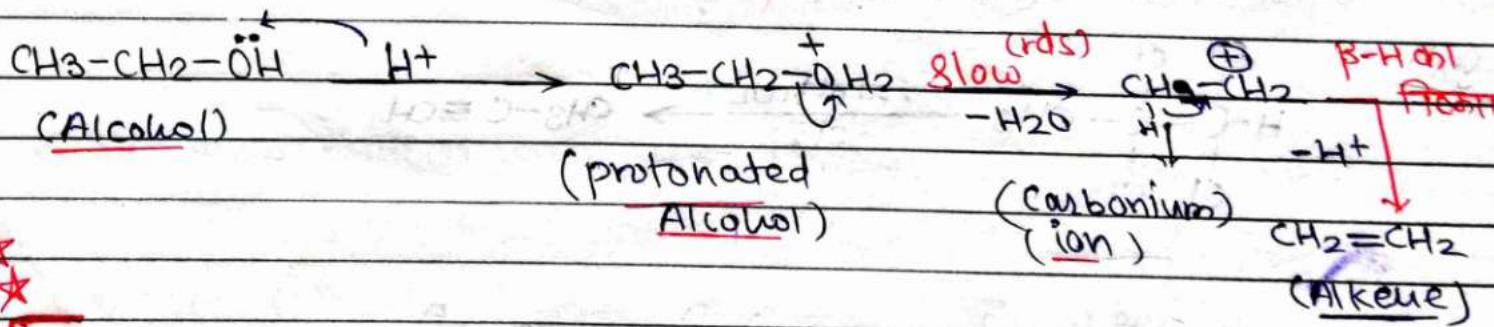 CH3-CH2-ÖH H+ → CH3-CH2-O⁺H2 Slow (rds) -H2O → CH2-CH2 ⊕ β-H का
H -H+
(Alcohol) (protonated Alcohol) (Carbonium) (ion)
CH2=CH2
(Alkene)